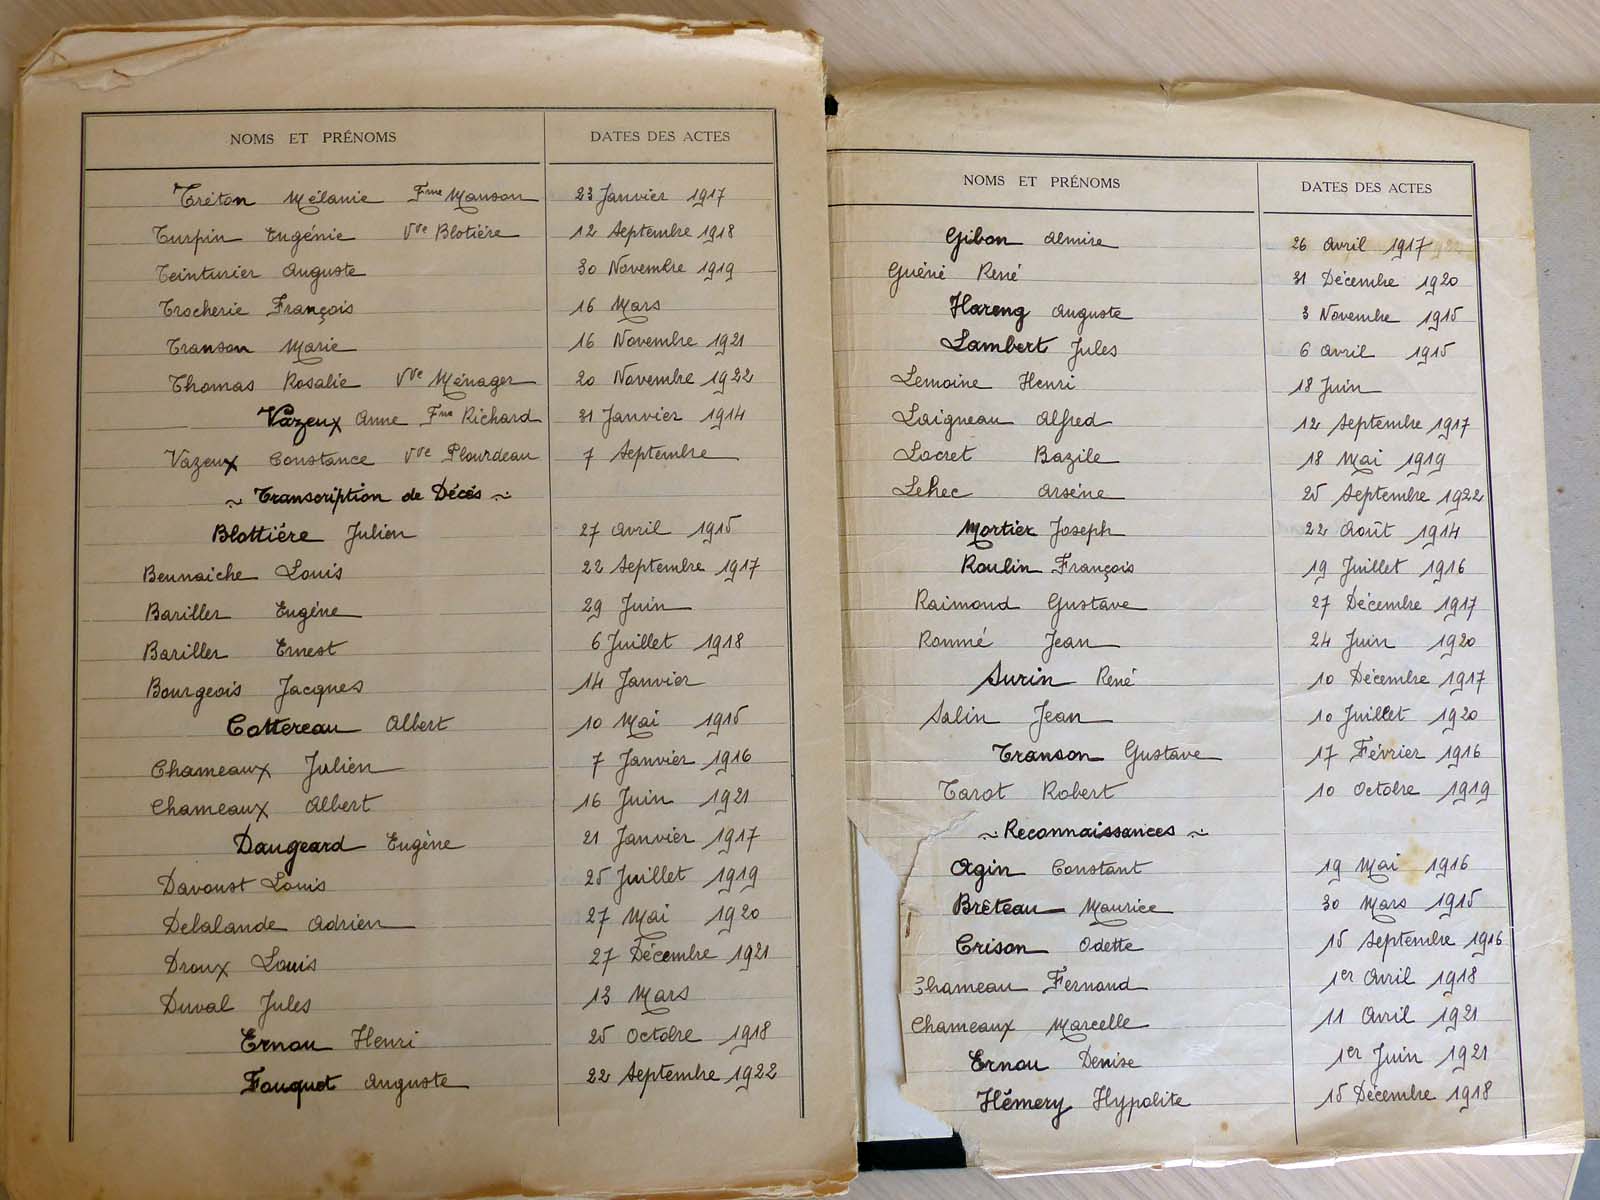 NOMS ET PRÉNOMS DATES DES ACTES
Tréton Mélanie Fme Manson 23 Janvier 1917
Turpin Eugénie Vve Blotière 12 Septembre 1918
Teinturier Auguste 30 Novembre 1919
Trocherie François 16 Mars
Transon Marie 16 Novembre 1921
Thomas Rosalie Vve Ménager 20 Novembre 1922
Vazeux Anne Fme Richard 31 Janvier 1914
Vazeux Constance Vve Plourdeau 7 Septembre
~ Transcription de Décès ~
Blottière Julien 27 Avril 1915
Beunaiche Louis 22 Septembre 1917
Bariller Eugène 29 Juin
Bariller Ernest 6 Juillet 1918
Bourgeois Jacques 14 Janvier
Cottereau Albert 10 Mai 1915
Chameaux Julien 7 Janvier 1916
Chameaux Albert 16 Juin 1921
Daugeard Eugène 21 Janvier 1917
Davoust Louis 25 Juillet 1919
Delalande Adrien 27 Mai 1920
Droux Louis 27 Décembre 1921
Duval Jules 13 Mars
Ernou Henri 25 Octobre 1918
Fouquet Auguste 22 Septembre 1922
NOMS ET PRÉNOMS DATES DES ACTES
Gibon Almire 26 Avril 1917
Guéné René 31 Décembre 1920
Hareng Auguste 3 Novembre 1915
Lambert Jules 6 Avril 1915
Lemoine Henri 18 Juin
Laigneau Alfred 12 Septembre 1917
Locret Bazile 18 Mai 1919
Lehec Arsène 25 Septembre 1922
Mortier Joseph 22 Août 1914
Roulin François 19 Juillet 1916
Raimond Gustave 27 Décembre 1917
Rommé Jean 24 Juin 1920
Surin René 10 Décembre 1917
Salin Jean 10 Juillet 1920
Transon Gustave 17 Février 1916
Tarot Robert 10 Octobre 1919
~ Reconnaissances ~
Agin Constant 19 Mai 1916
Breteau Maurice 30 Mars 1915
Crison Odette 15 Septembre 1916
Chameau Fernand 1er Avril 1918
Chameaux Marcelle 11 Avril 1921
Ernou Denise 1er Juin 1921
Hémery Hypolite 15 Décembre 1918